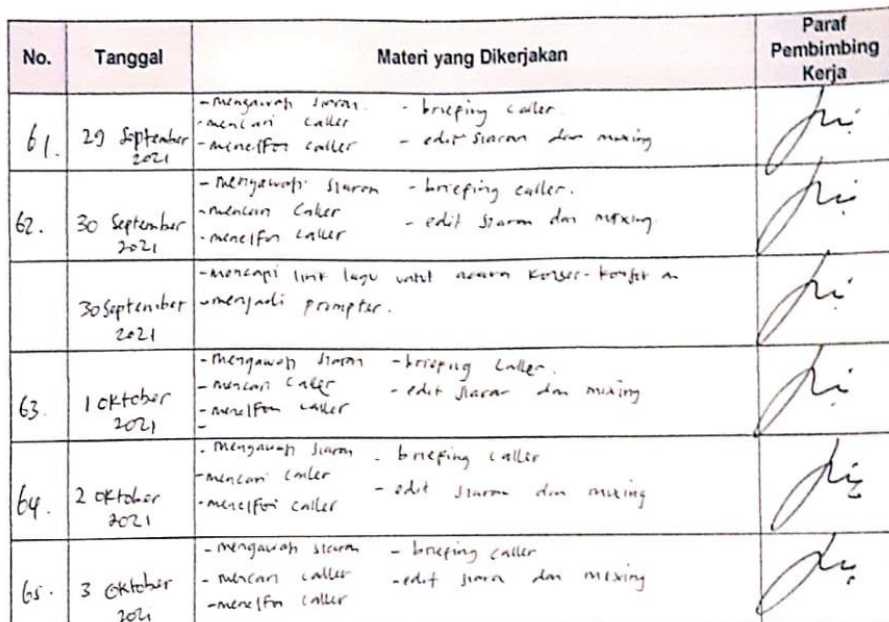 No. Tanggal Materi yang Dikerjakan Paraf Pembimbing Kerja
61. 29 September 2021
- mengawasi siaran - briefing caller.
- mencari caller
- menelfon caller - edit siaran dan mixing
62. 30 September 2021
- mengawasi siaran - briefing caller.
- mencari caller - edit siaran dan mixing.
- menelfon caller
30 September 2021
- mencari lirik lagu untuk acara konser-
- menjadi prompter.
63. 1 Oktober 2021
- mengawasi siaran - briefing caller.
- mencari caller - edit siaran dan mixing
- menelfon caller
-
64. 2 Oktober 2021
- mengawasi siaran - briefing caller
- mencari caller
- menelfon caller - edit siaran dan mixing
65. 3 Oktober 2021
- mengawasi siaran - briefing caller
- mencari caller - edit siaran dan mixing
- menelfon caller